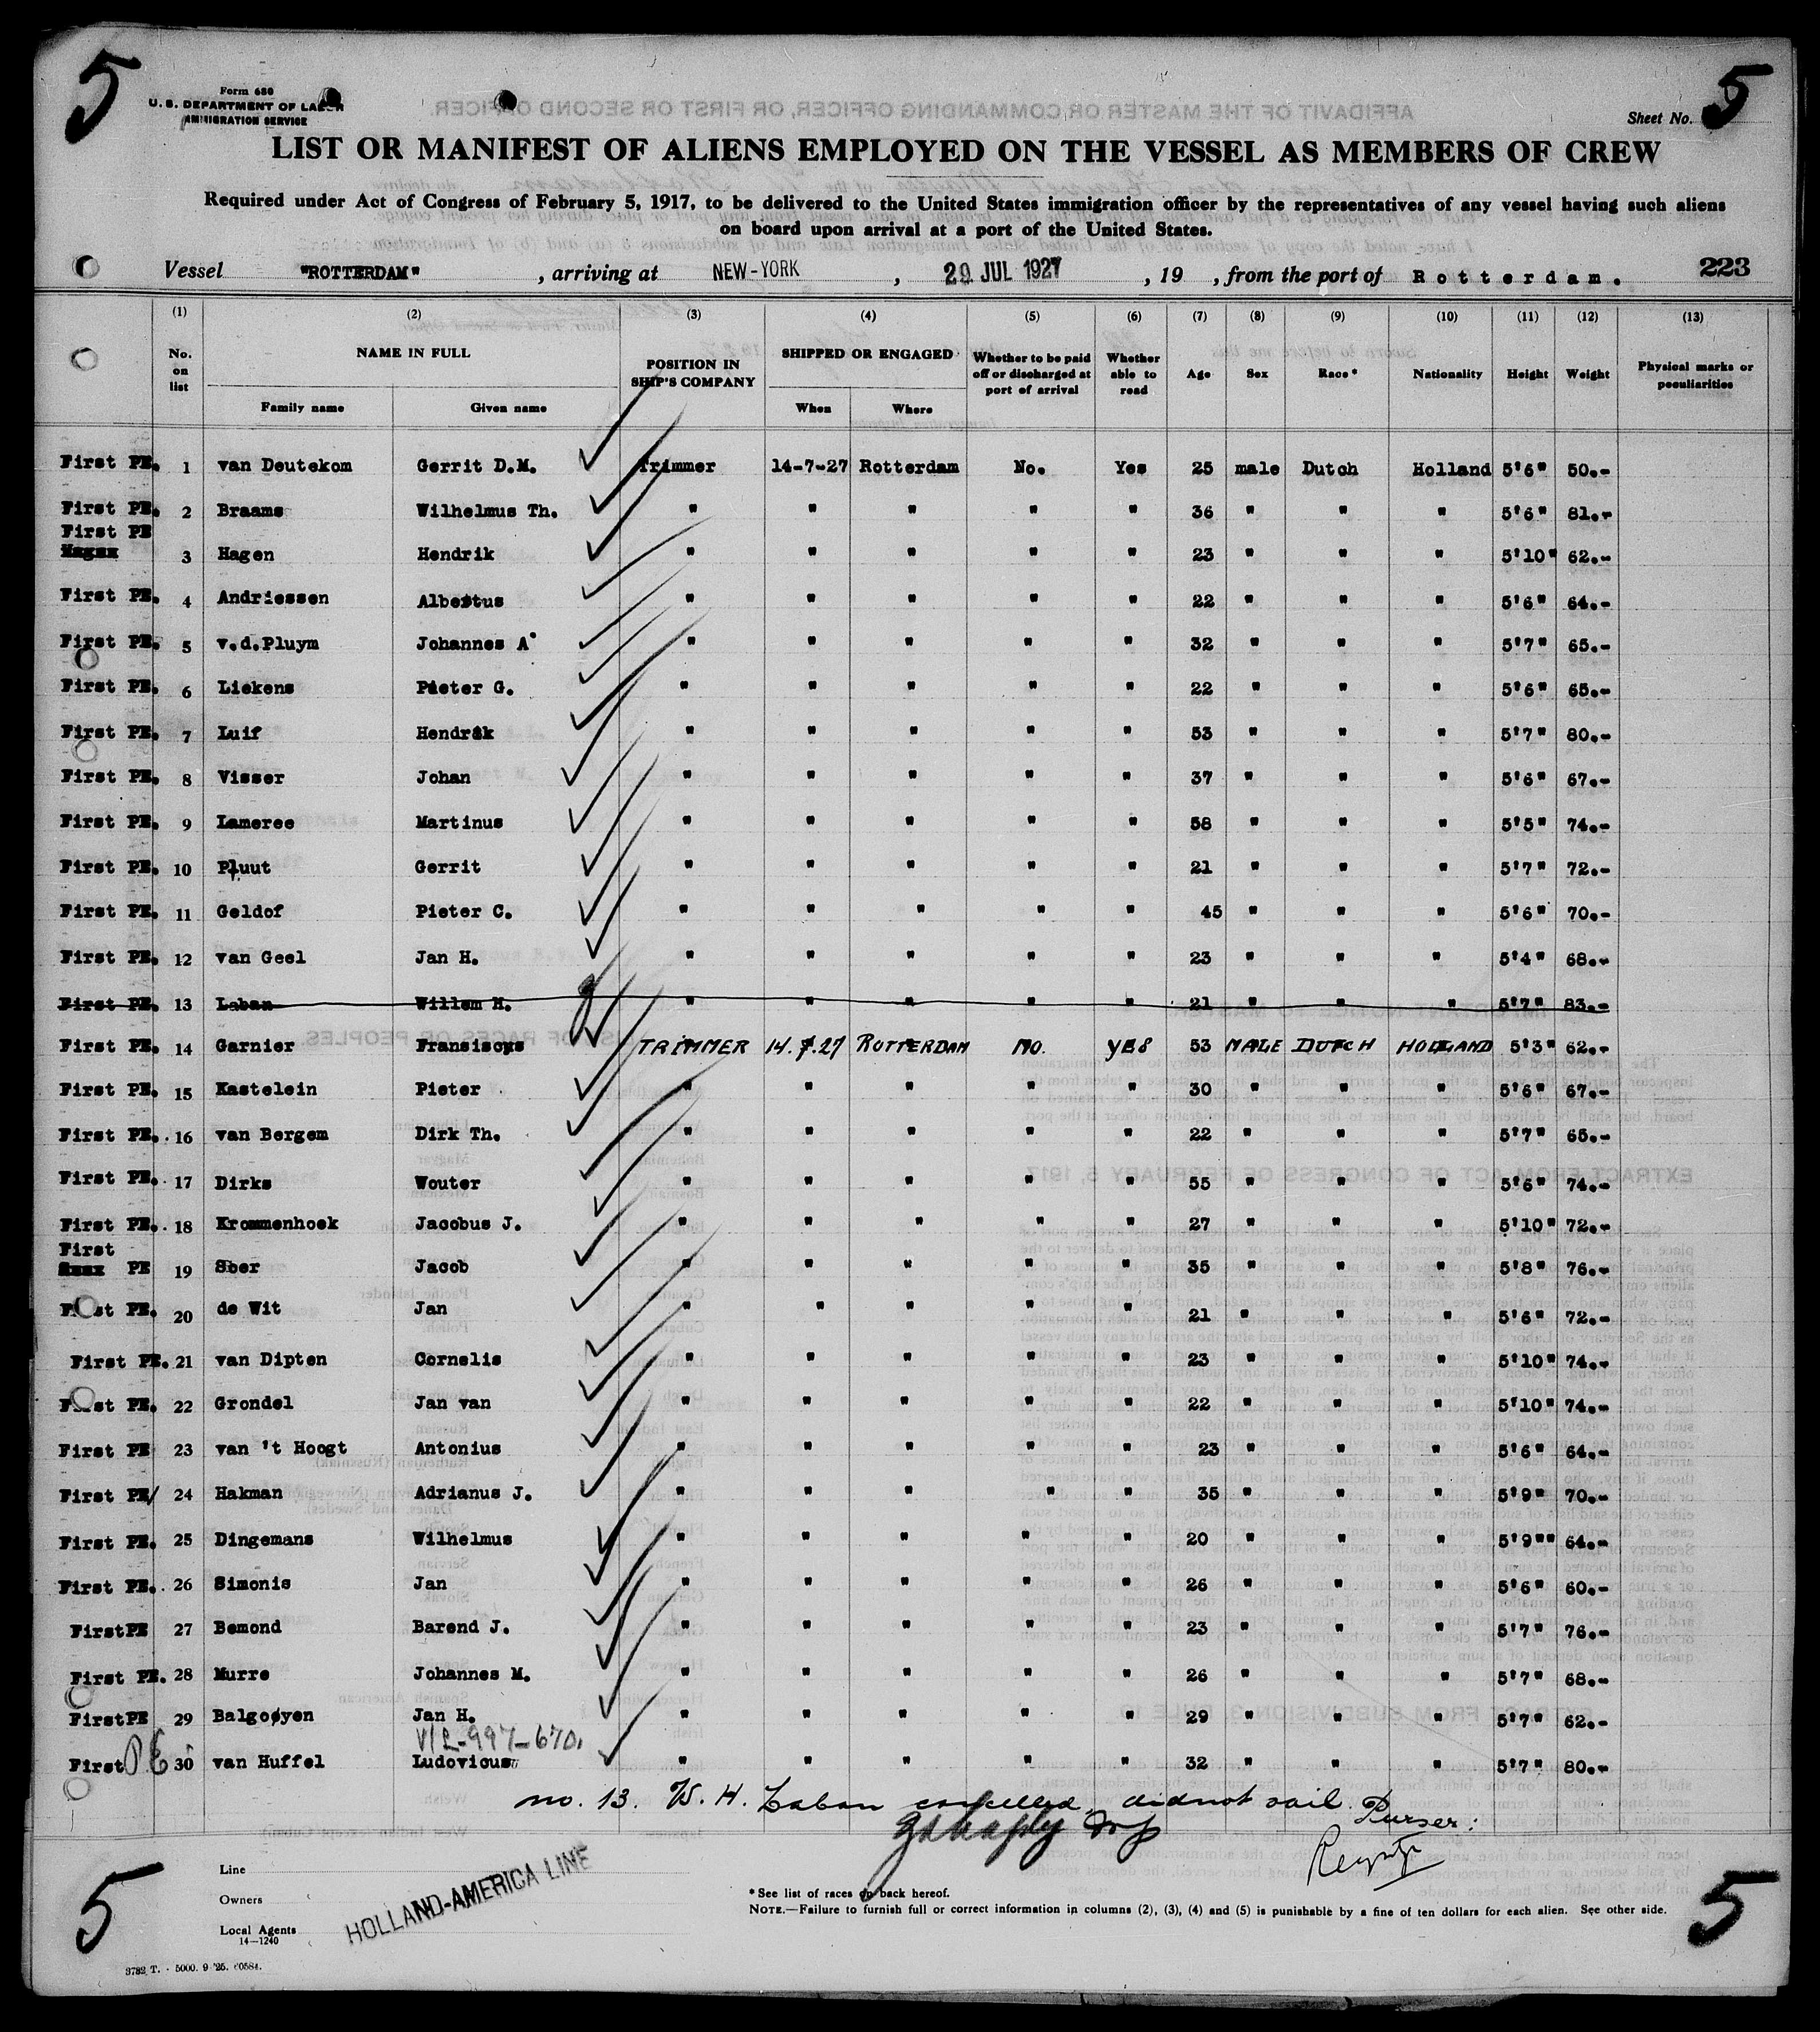 5
Form 680
U. S. DEPARTMENT OF LABOR
IMMIGRATION SERVICE
Sheet No. 5
LIST OR MANIFEST OF ALIENS EMPLOYED ON THE VESSEL AS MEMBERS OF CREW
Required under Act of Congress of February 5, 1917, to be delivered to the United States immigration officer by the representatives of any vessel having such aliens
on board upon arrival at a port of the United States.
Vessel "ROTTERDAM", arriving at NEW-YORK, 29 JUL 1927, 19 , from the port of Rotterdam. 223
(1) (2) (3) (4) (5) (6) (7) (8) (9) (10) (11) (12) (13)
No. on list NAME IN FULL POSITION IN SHIP'S COMPANY SHIPPED OR ENGAGED Whether to be paid off or discharged at port of arrival Whether able to read Age Sex Race* Nationality Height Weight Physical marks or peculiarities
Family name Given name When Where
First PE. 1 van Deutekom Gerrit D.M. Trimmer 14-7-27 Rotterdam No. Yes 25 male Dutch Holland 5'6" 50.-
First PE. 2 Braams Wilhelmus Th. " " " " " 36 " " " 5'6" 81.-
First PE
3 Hagen Hendrik " " " " " 23 " " " 5'10" 62.-
First PE. 4 Andriessen Albertus " " " " " 22 " " " 5'6" 64.-
First PE. 5 v.d.Pluym Johannes A " " " " " 32 " " " 5'7" 65.-
First PE. 6 Liekens Pieter G. " " " " " 22 " " " 5'6" 65.-
First PE. 7 Luif Hendrik " " " " " 53 " " " 5'7" 80.-
First PE. 8 Visser Johan " " " " " 37 " " " 5'6" 67.-
First PE. 9 Lameree Martinus " " " " " 58 " " " 5'5" 74.-
First PE. 10 Pluut Gerrit " " " " " 21 " " " 5'7" 72.-
First PE. 11 Geldof Pieter C. " " " " " 45 " " " 5'6" 70.-
First PE. 12 van Geel Jan H. " " " " " 23 " " " 5'4" 68.-
First PE. 13 Laban Willem H. " " " " " 21 " " " 5'7" 83.-
First PE. 14 Garnier Fransiscus TRIMMER 14.7.27 ROTTERDAM NO. YES 53 MALE DUTCH HOLLAND 5'3" 62.-
First PE. 15 Kastelein Pieter " " " " " 30 " " " 5'6" 67.-
First PE. 16 van Bergem Dirk Th. " " " " " 22 " " " 5'7" 65.-
First PE. 17 Dirks Wouter " " " " " 55 " " " 5'6" 74.-
First PE. 18 Krommenhoek Jacobus J. " " " " " 27 " " " 5'10" 72.-
First
PE 19 Sber Jacob " " " " " 35 " " " 5'8" 76.-
First PE. 20 de Wit Jan " " " " " 21 " " " 5'6" 72.-
First PE. 21 van Dipten Cornelis " " " " " 23 " " " 5'10" 74.-
First PE. 22 Grondel Jan van " " " " " 22 " " " 5'10" 74.-
First PE 23 van 't Hoogt Antonius " " " " " 23 " " " 5'6" 64.-
First PE/ 24 Hakman Adrianus J. " " " " " 35 " " " 5'9" 70.-
First PE. 25 Dingemans Wilhelmus " " " " " 20 " " " 5'9"" 64.-
First PE. 26 Simonis Jan " " " " " 26 " " " 5'6" 60.-
FirstPE 27 Bemond Barend J. " " " " " 23 " " " 5'7" 76.-
First PE. 28 Murre Johannes M. " " " " " 26 " " " 5'7" 68.-
FirstPE 29 Balgooyen Jan H. " " " " " 29 " " " 5'7" 62.-
V/L-997-670.
First PE 30 van Huffel Ludovicus " " " " " 32 " " " 5'7" 80.-
no. 13. W. H. Laban cancelled, did not sail. Purser:
5
Line
Owners
Local Agents
14-1240
HOLLAND-AMERICA LINE
* See list of races on back hereof.
NOTE.—Failure to furnish full or correct information in columns (2), (3), (4) and (5) is punishable by a fine of ten dollars for each alien. See other side.
5
3782 T. - 5000. 9 '25. 60584.